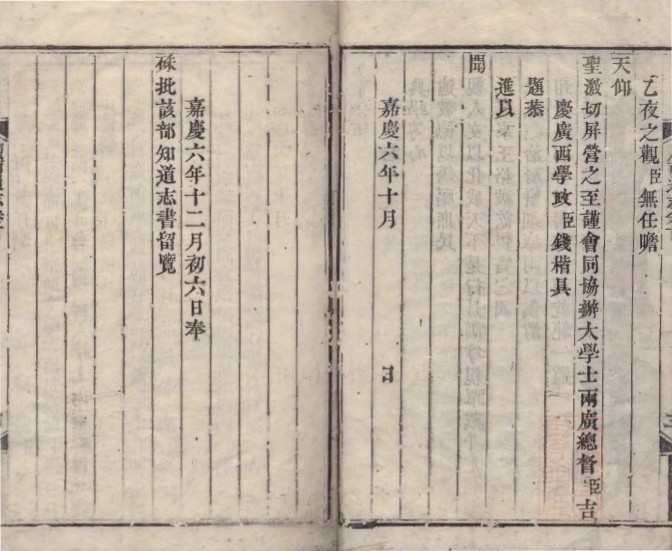 乙夜之觀臣無任瞻
天仰
聖激切屏營之至謹會同協辦大學士兩廣總督臣吉
慶廣西學政臣錢楷具
題恭
進以
聞
嘉慶六年十月 日
嘉慶六年十二月初六日奉
硃批該部知道志書留覽